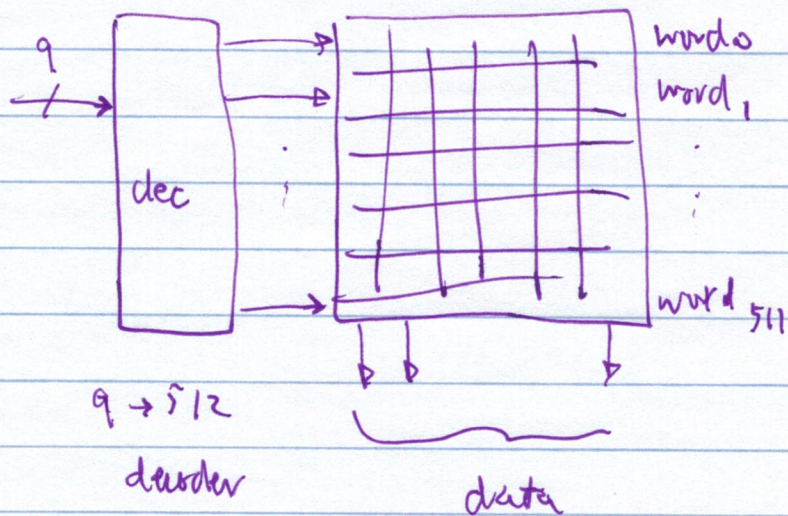 9
word 0
word 1
dec
word 511
9 → 512
decoder
data